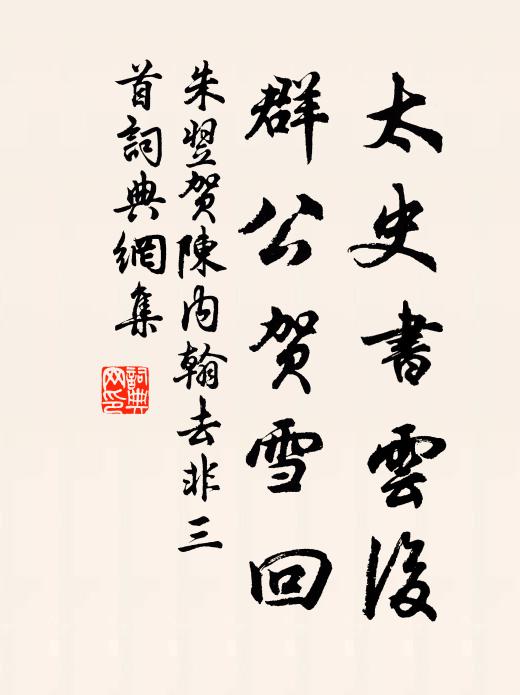 太史書雲後
群公賀雪回
朱翌賀陳内翰去非三
首詞典網集
詞典網印